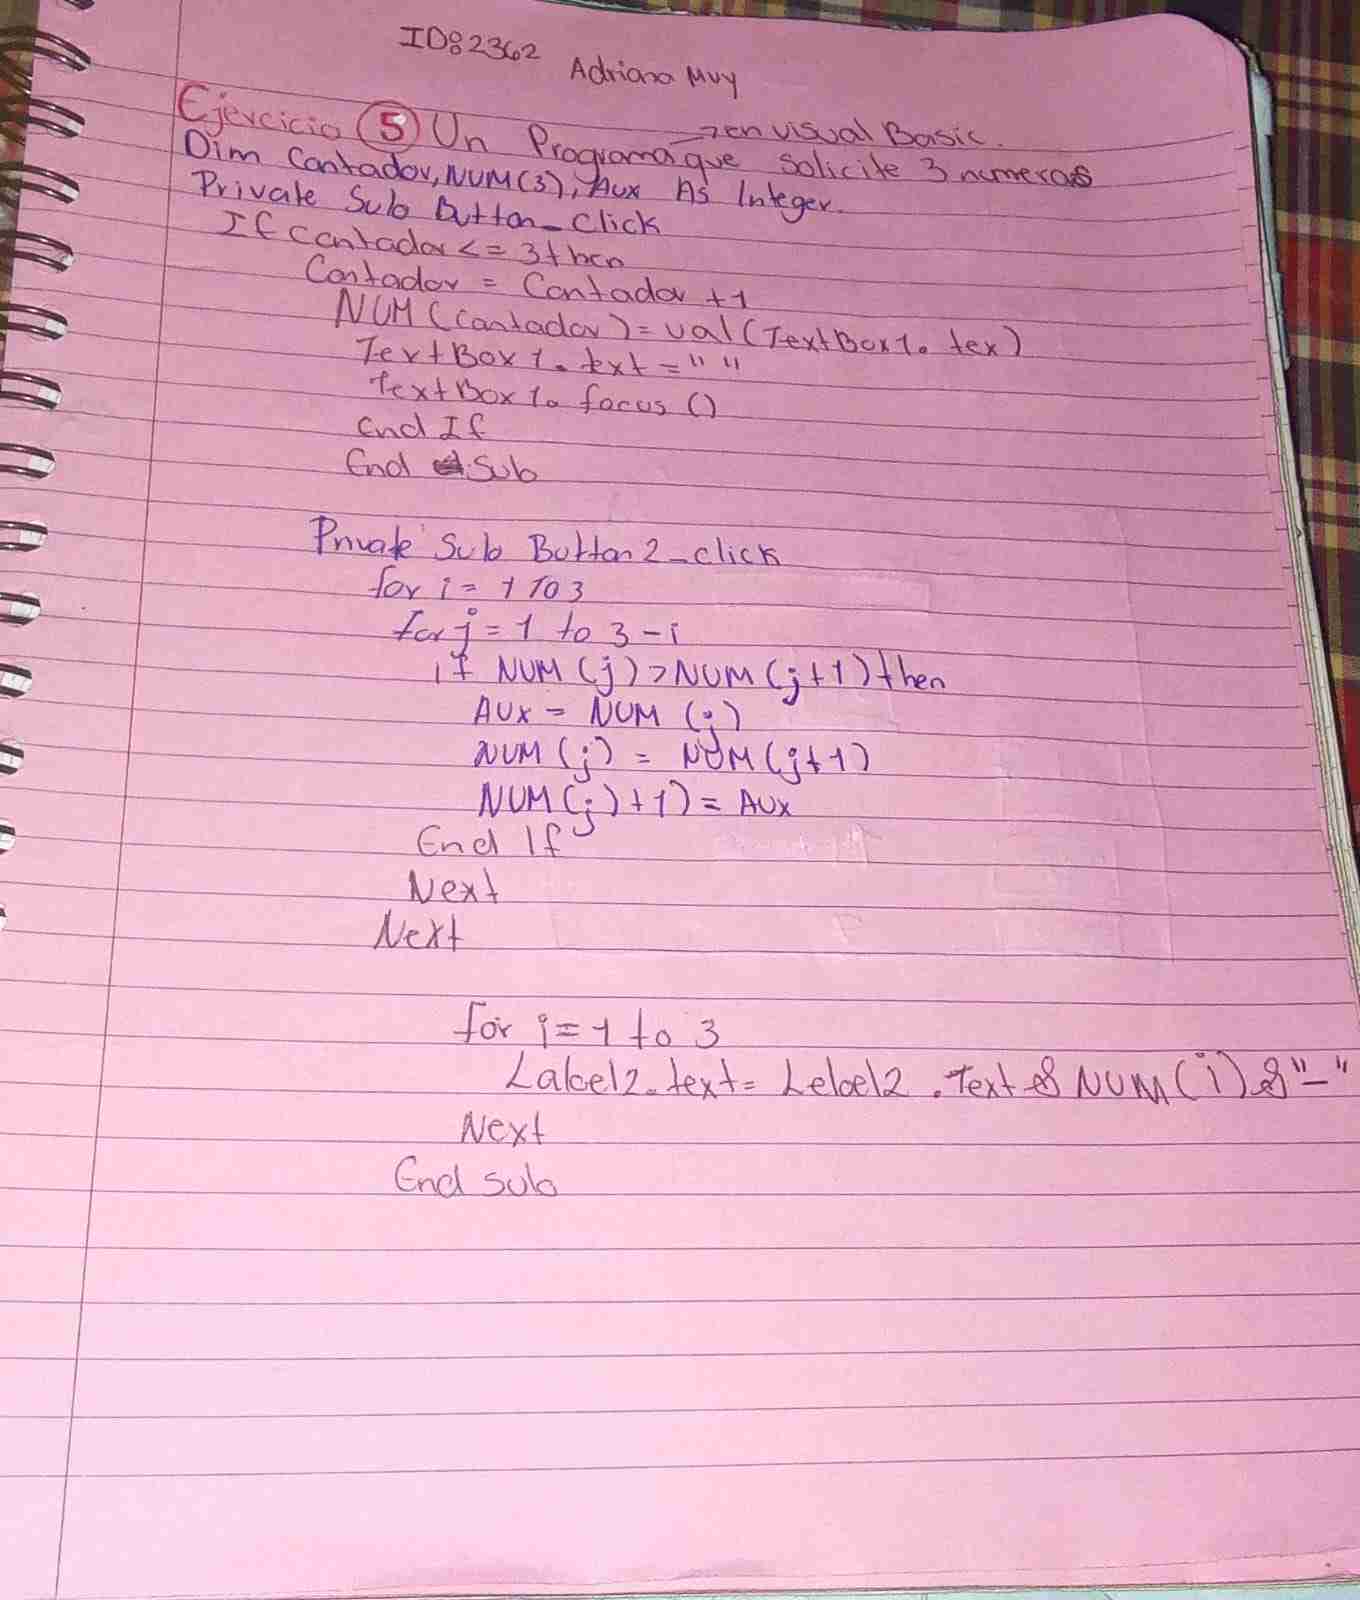 ID:82362
Adriana Muy
Ejercicio 5 Un Programa que solicite 3 numeros
→ en visual Basic.
Dim Contador, NUM(3), Aux As Integer.
Private Sub Button_Click
If Contador <= 3 then
Contador = Contador +1
NUM (contador) = val (TextBox1. tex)
TextBox 1. text = " "
TextBox 1. focus ()
End If
End Sub
Private Sub Button 2_click
for i = 1 TO 3
for j = 1 to 3 - i
if NUM (j) > NUM (j+1) then
AUX = NUM (j)
NUM (j) = NUM (j+1)
NUM(j)+1) = AUX
End If
Next
Next
for i = 1 to 3
Label2.text = Lebel2 .Text & NUM (i) & "-"
Next
End sub